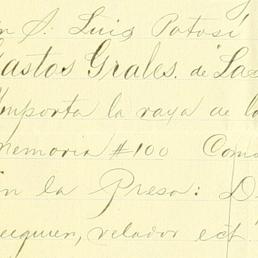 n S. Luis Potosí
Gastos Grales. de "La
Importa la raya de la
memoria #100 Com
en la Presa: D
velador ect.